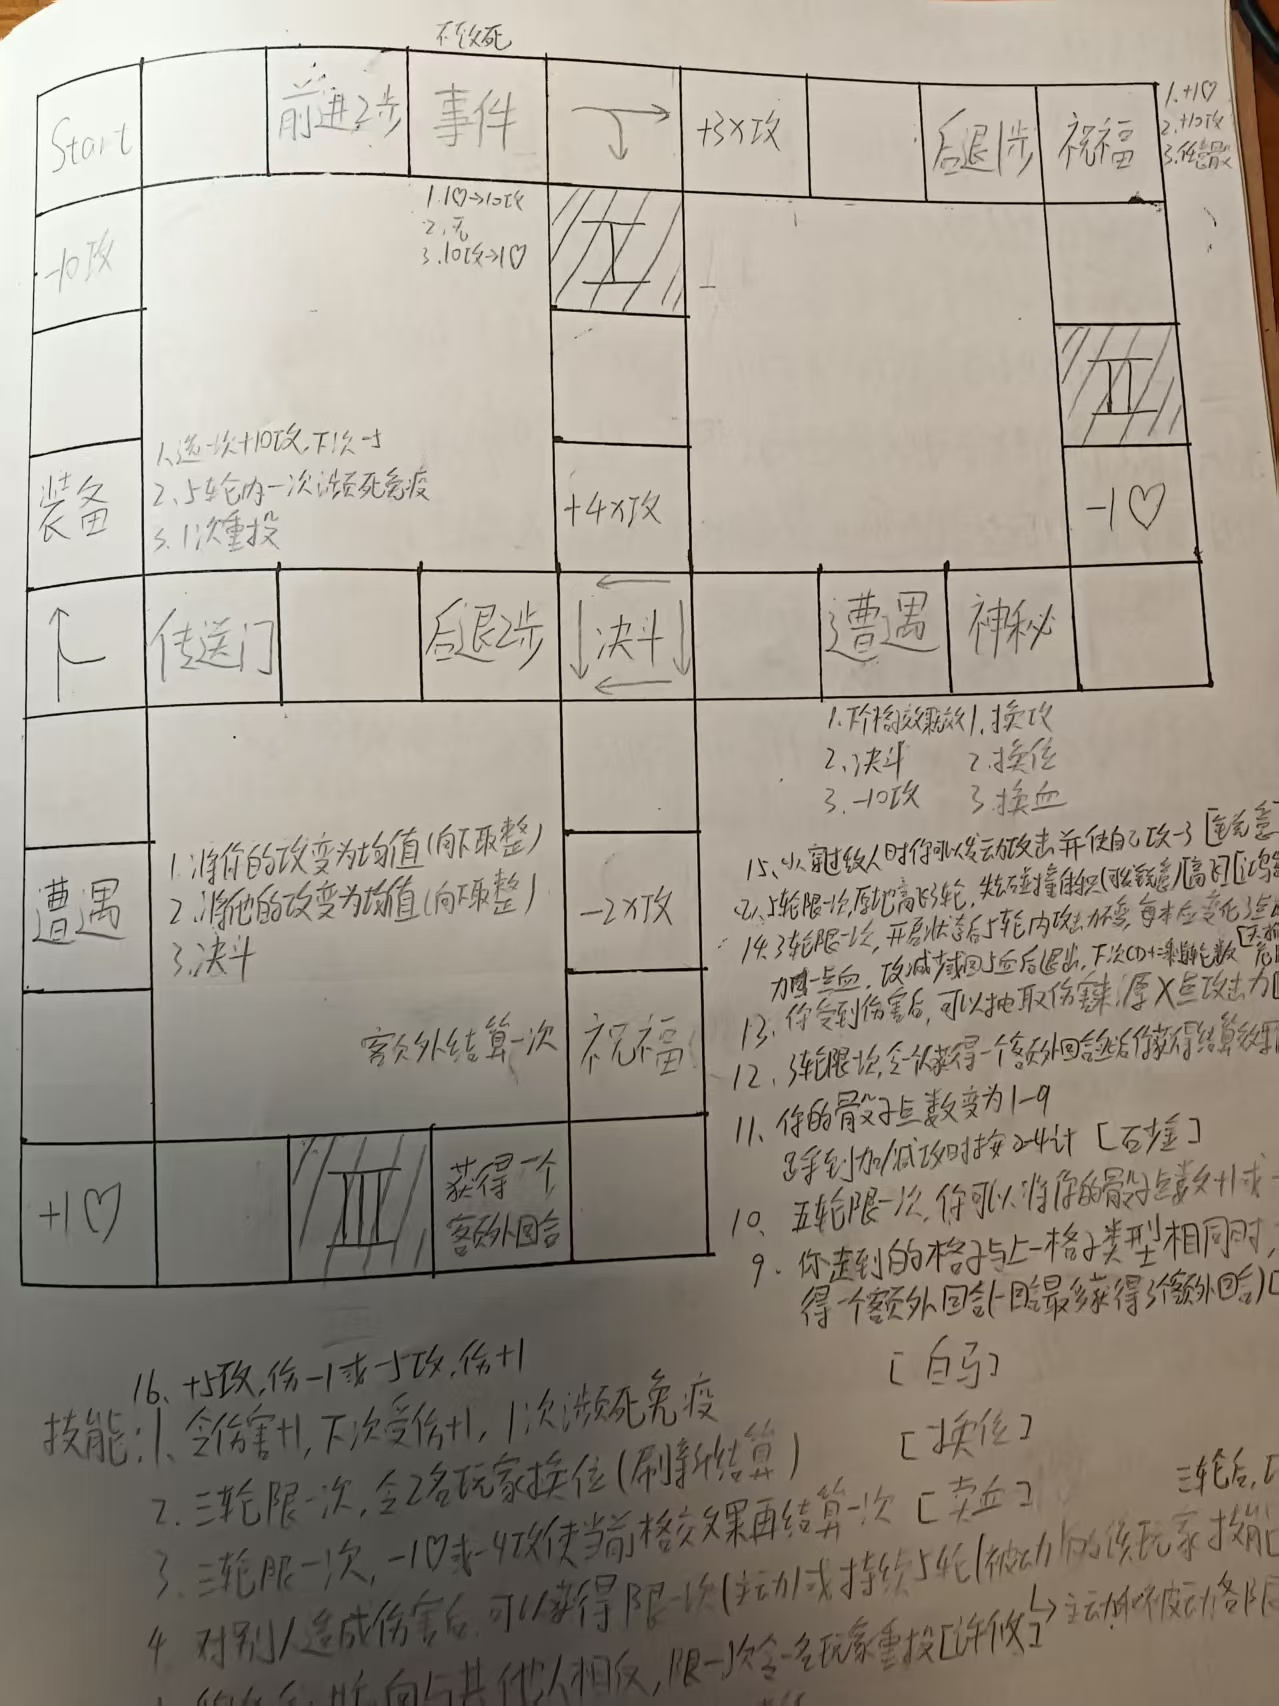 不致死
Start
前进2步
事件
+3×攻
后退1步
祝福
1.+1♡
2.+10攻
3.任意骰
-10攻
1.1♡→10攻
2.无
3.10攻→1♡
I
II
1.选一次+10攻,下次-5
2.5轮内一次濒死免疫
3.1次重投
装备
+4×攻
-1♡
传送门
后退2步
决斗
遭遇
神秘
1.下个格效果
2.决斗
3.-10攻
1.换攻
2.换位
3.换血
1.将你的攻变为均值(向下取整)
2.将他的攻变为均值(向下取整)
3.决斗
遭遇
-2×攻
额外结算一次
祝福
+1♡
III
获得一个
额外回合
15、当穿过敌人时你可以发动攻击并使自己攻-3
5轮限一次,原地高飞3轮,失去碰撞体积
14.3轮限一次,开启状态后5轮内攻击力不变,每本应变化3点
力回一点血,攻减少或回5血后退出,下次CD+剩余轮数
13、你受到伤害后,可以抽取伤害来源X点攻击力
12、3轮限一次,令一人获得一个额外回合
11、你的骰子点数变为1-9
走到加/减攻时按2-4计 [石金]
10、五轮限一次,你可以将你的骰子点数+1或
9、你走到的格子与上一格子类型相同时,
得一个额外回合(一回合最多获得3个额外回合)
[白马]
16、+5攻,伤-1或-5攻,伤+1
技能:1、令伤害+1,下次受伤+1,1次濒死免疫
2、三轮限一次,令2名玩家换位(刷新结算) [换位]
3、三轮限一次,-1♡或-4攻使当前格效果再结算一次 [卖血]
三轮后,
4、对别人造成伤害后,可以获得限一次(主动)或持续5轮(被动)的该玩家技能
主动和被动各限
向与其他人相反,限一次令一名玩家重投[许攸]